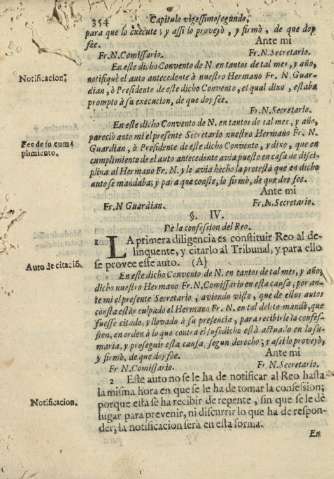 354 Capitulo vigessimosegundo,
para que lo execute; y assi lo proveyò, y firmò, de que doy
fee. Ante mi
Fr. N. Comissario. Fr. N. Secretario.
Notificacion. En este dicho Convento de N. en tantos de tal mes, y año,
notifiquè el auto antecedente à nuestro Hermano Fr. N. Guar-
dian, ò Presidente de este dicho Convento, el qual dixo, estaba
prompto à su execucion, de que doy fee.
Fr. N. Secretario.
En este dicho Convento de N. en tantos de tal mes, y año,
Fee de su cum- pareciò ante mi el presente Secretario nuestro Hermano Fr. N.
plimiento. Guardian, ò Presidente de este dicho Convento, y dixo, que en
cumplimiento de el auto antecedente avia puesto en casa de disci-
plina al Hermano Fr. N. y le avia hecho la protesta que en dicho
auto se mandaba; y para que conste, lo firmò, de que doy fee.
Ante mi
Fr. N Guardian. Fr. N. Secretario.
§. IV.
De la confession del Reo.
1 LA primera diligencia es constituir Reo al de-
linquente, y citarlo al Tribunal, y para ello
Auto de citaciō. se provee este auto. (A)
En este dicho Convento de N. en tantos de tal mes, y año,
dicho nuestro Hermano Fr. N. Comissario en esta causa, por an-
te mi el presente Secretario, aviendo visto, que de estos autos
consta estàr culpado el Hermano Fr. N. en tal delito mando, que
fuesse citado, y llevado à su presencia, para recibirle la confes-
sion, en orden à lo que contra el susodicho està actuado en la su-
maria, y proseguir esta causa, segun derecho; y assi lo proveyò,
y firmò, de que doy fee. Ante mi
Fr. N. Comissario. Fr. N. Secretario.
2 Este auto no se le ha de notificar al Reo hasta
la misma hora en que se le ha de tomar la confession;
porque esta se ha recibir de repente, sin que se le dè
Notificacion. lugar para prevenir, ni discurrir lo que ha de respon-
der; la notificacion serà en esta forma.
En